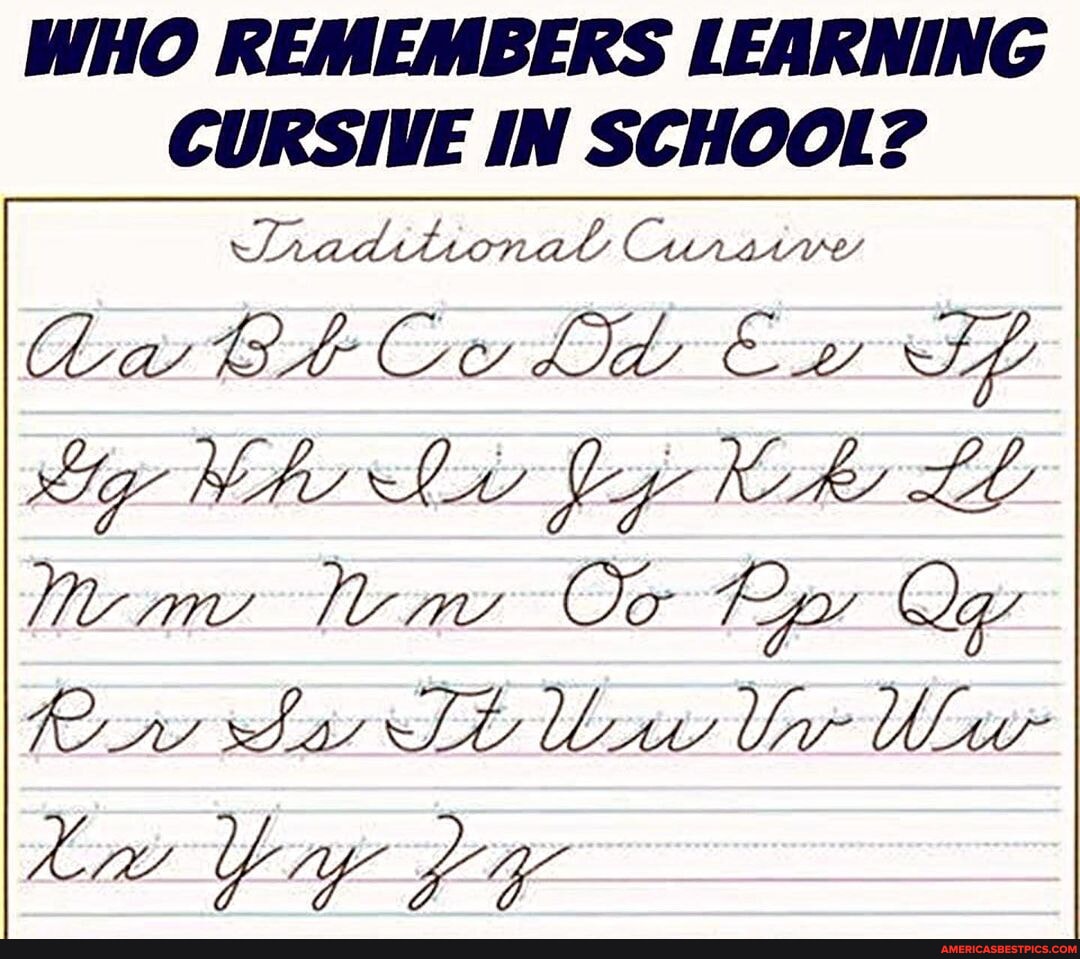 WHO REMEMBERS LEARNING
CURSIVE IN SCHOOL?
Traditional Cursive
Aa Bb Cc Dd Ee Ff
Gg Hh Ii Jj Kk Ll
Mm Nn Oo Pp Qq
Rr Ss Tt Uu Vv Ww
Xx Yy Zz
AMERICASBESTPICS.COM